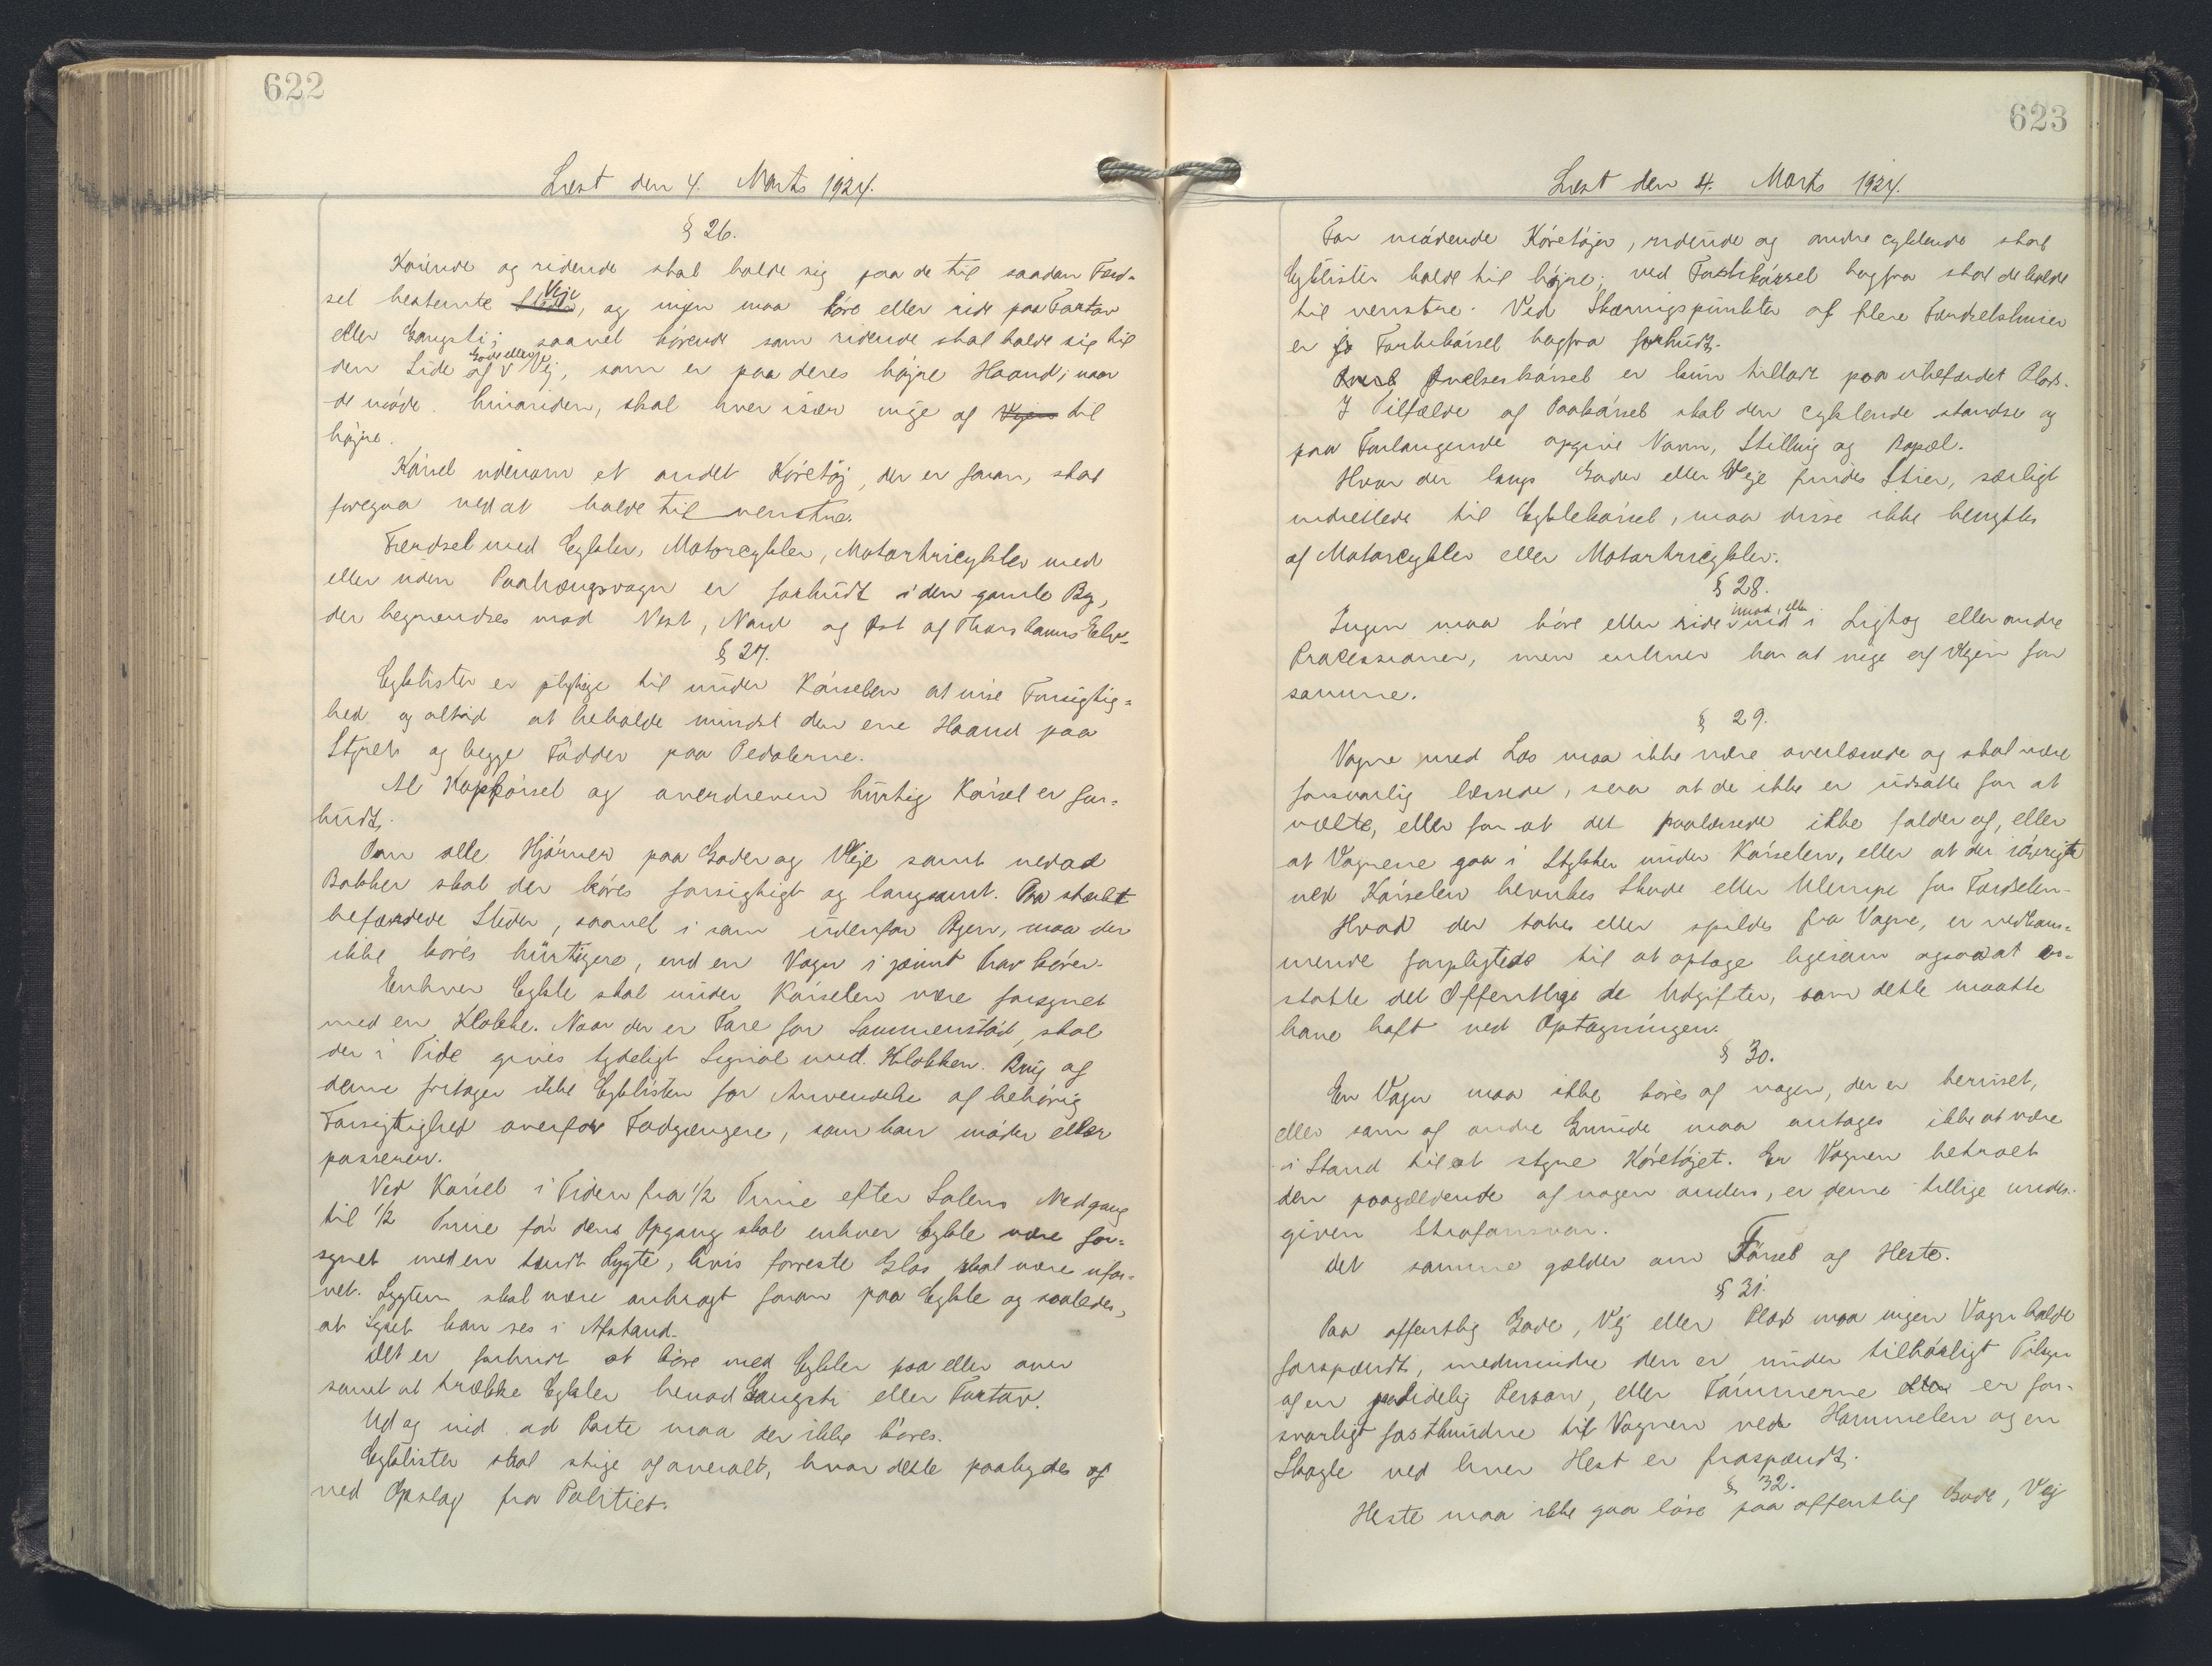 622
Læst den 4. Marts 1924.
§ 26.
Kørende og ridende skal holde sig paa de til saadan Færd-
sel bestemte Veje, og ingen maa køre eller ride paa Fortov
eller Gangsti; saavel kørende som ridende skal holde sig til
den Side af Gade eller Vej, som er paa deres højre Haand; naar
de møde hinanden, skal hver især vige af Vejen til
højre.
Kørsel udenom et andet Køretøj, der er foran, skal
foregaa ved at holde til venstre.
Færdsel med Cykler, Motorcykler, Motortricykler med
eller uden Paahængsvogn er forbudt i den gamle By,
der begrændses mod Vest, Nord og Øst af Thorshavns
§ 27.
Cyklister er pligtige til under Kørselen at vise Forsigtig-
hed og altid at beholde mindst den ene Haand paa
Styret og begge Fødder paa Pedalerne.
Al Kapkørsel og overdreven hurtig Kørsel er for-
budt.
Om alle Hjørner paa Gader og Veje samt nedad
Bakker skal der køres forsigtigt og langsomt. Paa stærkt
befærdede Steder, saavel i som udenfor Byen, maa der
ikke køres hurtigere, end en Vogn i jævnt Trav kører.
Enhver Cykle skal under Kørselen være forsynet
med en Klokke. Naar der er Fare for Sammenstød, skal
der i Tide gives tydeligt Signal med Klokken. Brug af
denne fritager ikke Cyklisten for Anvendelse af behørig
Forsigtighed overfor Fodgængere, som han møder eller
passerer.
Ved Kørsel i Tiden fra 1/2 Time efter Solens Nedgang
til 1/2 Time før dens Opgang skal enhver Cykle være for-
synet med en tændt Lygte, hvis forreste Glas skal være ufar-
vet. Lygten skal være anbragt foran paa Cykle og saaledes,
at Lyset kan ses i Afstand.
Det er forbudt at køre med Cykler paa eller over
samt at trække Cykler henad Gangsti eller Fortov.
Ud og ind ad Porte maa der ikke køres.
Cyklister skal stige af overalt, hvor dette paabydes af
ved Opslag fra Politiet.
623
Læst den 4. Marts 1924.
For mødende Køretøjer, ridende og andre cyklende skal
Cyklister holde til højre; ved Forbikørsel bagfra skal de holde
til venstre. Ved Skæringspunkter af flere Færdselslinier
er Forbikørsel bagfra forbudt.
Øvelseskørsel er kun tilladt paa ubefærdet Plads.
I Tilfælde af Paakørsel skal den cyklende standse og
paa Forlangende opgive Navn, Stilling og Bopæl.
Hvor der langs Gader eller Veje findes Stier, særligt
indrettede til Cyklekørsel, maa disse ikke benyttes
af Motorcykler eller Motortricykler.
§ 28.
Ingen maa køre eller ride imod, eller ind i Ligtog eller andre
Processioner, men enhver har at vige af Vejen for
samme.
§ 29.
Vogne med Læs maa ikke være overlæssede og skal være
forsvarlig læssede, saa at de ikke er udsatte for at
vælte, eller for at det paalæssede ikke falder af, eller
at Vognene gaa i Stykker under Kørselen, eller at der iøvrigt
ved Kørselen bevirkes Skade eller Ulempe for Færdselen.
Hvad der tabes eller spildes fra Vogne, er vedkom-
mende forpligtede til at optage ligesom ogsaa at er-
statte det Offentlige de Udgifter, som dette maatte
have haft ved Optagningen.
§ 30.
En Vogn maa ikke køres af nogen, der er beruset,
eller som af andre Grunde maa antages ikke at være
i Stand til at styre Køretøjet. Er Vognen betroet
den paagældende af nogen anden, er denne tillige under-
given Strafansvar.
Det samme gælder om Førsel af Heste.
§ 31.
Paa offentlig Gade, Vej eller Plads maa ingen Vogn holde
forspændt, medmindre den er under tilbørligt Tilsyn
af en paalidelig Person, eller Tømmerne er for-
svarligt fastbundne til Vognen ved Hammelen og en
Skagle ved hver Hest er fraspændt.
§ 32.
Heste maa ikke gaa løse paa offentlig Gade, Vej